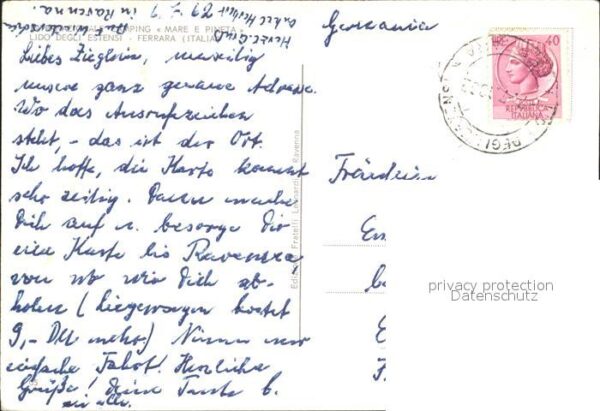 Germania
CAMPING « MARE E PINETA »
LIDO DEGLI ESTENSI - FERRARA (ITALIA)
Auf Wiedersehn
in Ravenna.
Onkel Herbert
Herzl. Gruß
Liebes Zieglerin,
unsere ganz genaue Adresse.
Wo das Ausrufzeichen
steht, - das ist der Ort.
Ich hoffe, die Karte kommt
sehr zeitig. Dann mache
Dich auf u. besorge Dir
eine Karte bis Ravenna,
von wo wir Dich ab-
holen (Liegewagen kostet
9,- DM mehr) Nimm nur
einfache Fahrt! Herzliche
Grüße! Deine Tante E.
wir alle.
Edizione Fratelli Leonardi - Ravenna
Fräulein
40
REPUBBLICA
ITALIANA
privacy protection
Datenschutz